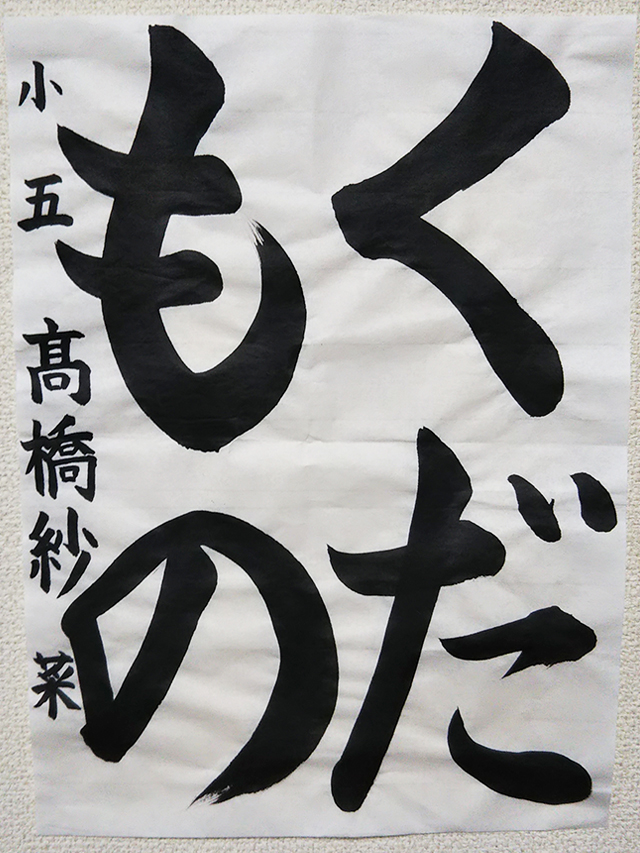 くだ
もの
小五 髙橋紗菜